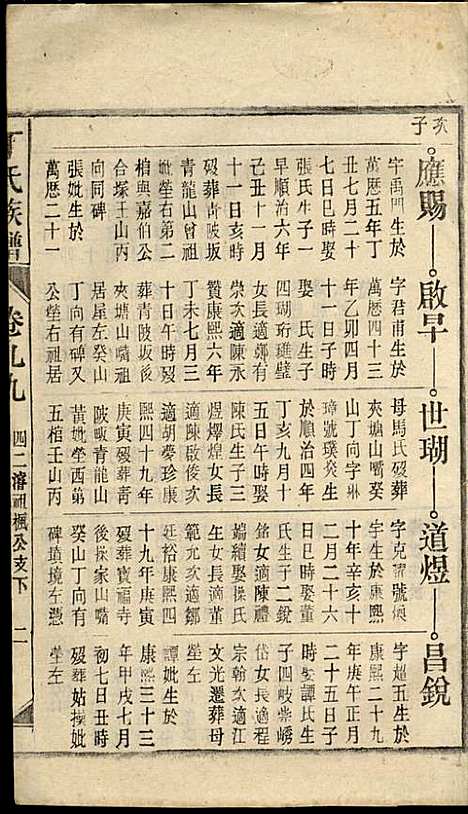 亥子
應賜
字禹門生於
萬曆五年丁
丑七月二十
七日巳時娶
張氏生子一
早順治六年
己丑十一月
十一日亥時
歿葬青陂坂
青龍山曾祖
妣塋右第二
棺與嘉伯公
合塚壬山丙
向同碑
張妣生於
萬曆二十一
啟早
字君甫生於
萬曆四十三
年乙卯四月
十一日子時
娶 氏生子
四瑚珩璡璧
女長適鄭有
崇次適陳永
贊康熙六年
丁未七月三
十日午時歿
葬青陂坂後
夾塘山嘴祖
居屋左癸山
丁向有碑又
公塋右祖居
世瑚
母馬氏歿葬
夾塘山嘴癸
山丁向字琳
璋號璞癸生
於順治四年
丁亥九月十
五日午時娶
陳氏生子三
煜燡煌女長
適陳啟俊次
適胡夢珍康
熙四十九年
庚寅歿葬青
陂畈青龍山
黃妣塋西第
五棺壬山丙
道煜
字克 號煥
宇生於康熙
十年辛亥十
二月二十六
日巳時娶董
氏生子二銳
銘女適陳禮
端續娶操氏
生女長適董
範允次適鄒
廷裕康熙四
十九年庚寅
歿葬寶福寺
後操家山嘴
癸山丁向有
碑墳境左憑
昌銳
字超五生於
康熙二十九
年庚午正月
二十五日子
時娶譚氏生
子四岐 嶠
岱女長適程
宗翰次適江
文光遷葬母
塋左
譚妣生於
康熙三十三
年甲戌七月
初七日丑時
歿葬姑操妣
塋左
丁氏族譜
卷九九
四二溶祖楓公支下
二